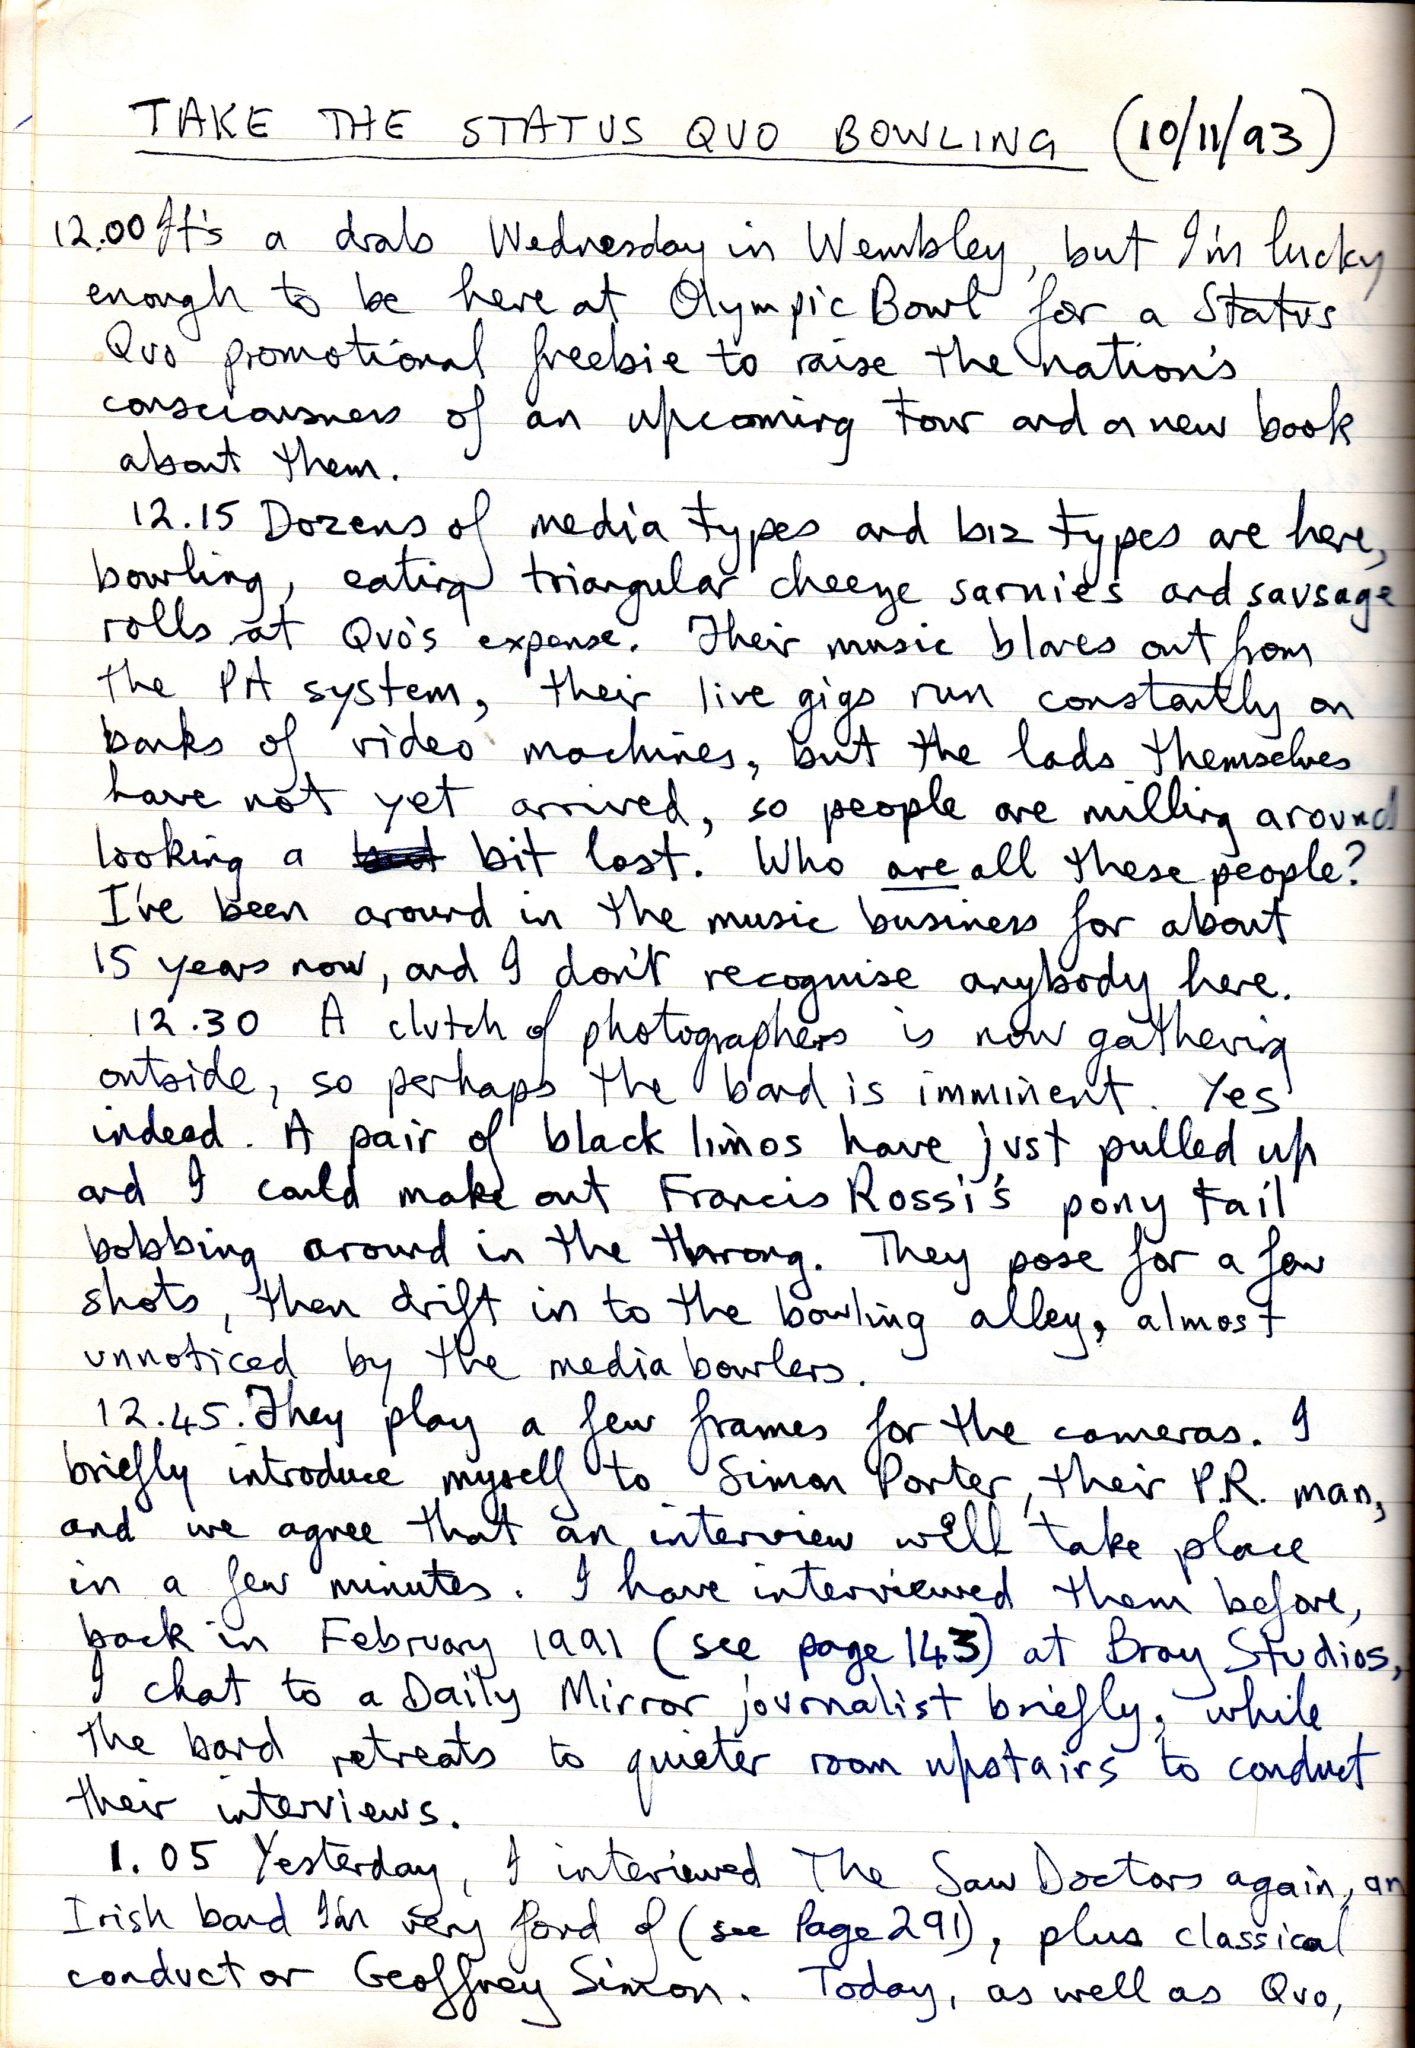 TAKE THE STATUS QUO BOWLING (10/11/93)
12.00 It's a drab Wednesday in Wembley, but I'm lucky
enough to be here at Olympic Bowl for a Status
Quo promotional freebie to raise the nation's
consciousness of an upcoming tour and a new book
about them.
12.15 Dozens of media types and biz types are here,
bowling, eating triangular cheese sarnies and sausage
rolls at Quo's expense. Their music blares out from
the PA system, their live gigs run constantly on
banks of video machines, but the lads themselves
have not yet arrived, so people are milling around
looking a bit lost. Who are all these people?
I've been around in the music business for about
15 years now, and I don't recognise anybody here.
12.30 A clutch of photographers is now gathering
outside, so perhaps the band is imminent. Yes
indeed. A pair of black limos have just pulled up
and I could make out Francis Rossi's pony tail
bobbing around in the throng. They pose for a few
shots, then drift in to the bowling alley, almost
unnoticed by the media bowlers.
12.45. They play a few frames for the cameras. I
briefly introduce myself to Simon Porter, their P.R. man,
and we agree that an interview will take place
in a few minutes. I have interviewed them before,
back in February 1991 (see page 143) at Bray Studios,
I chat to a Daily Mirror journalist briefly, while
the band retreats to quieter room upstairs to conduct
their interviews.
1.05 Yesterday, I interviewed The Saw Doctors again, an
Irish band I'm very fond of (see Page 291), plus classical
conductor Geoffrey Simon. Today, as well as Quo,